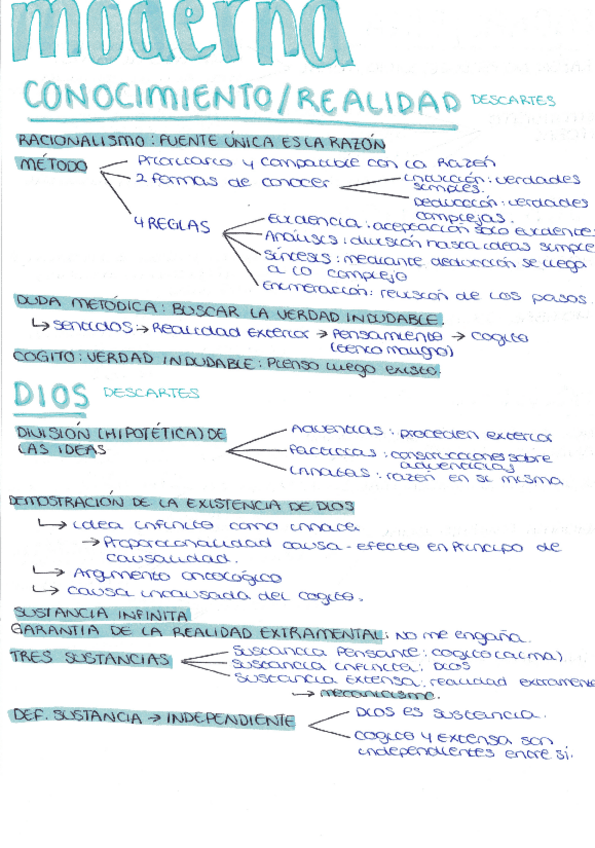 moderna
CONOCIMIENTO/REALIDAD DESCARTES
RACIONALISMO: FUENTE ÚNICA ES LA RAZÓN
MÉTODO
Prioritario y compatible con la Razón
2 formas de conocer
intuición: verdades simples.
Deducción: verdades complejas.
4 REGLAS
Evidencia: aceptación solo evidente
Análisis: división hasta ideas simple
Síntesis: mediante deducción se llega
a lo complejo
Enumeración: revisión de los pasos.
DUDA METÓDICA: BUSCAR LA VERDAD INDUDABLE.
↳ sentidos → Realidad exterior → Pensamiento → cogito
(genio maligno)
COGITO: VERDAD INDUDABLE: Pienso luego existo.
DIOS DESCARTES
DIVISIÓN (HIPOTÉTICA) DE
LAS IDEAS
Adventicias: proceden exterior
Facticias: construcciones sobre
adventicias
innatas: razón en si misma
DEMOSTRACIÓN DE LA EXISTENCIA DE DIOS
↳ idea infinito como innata.
→ Proporcionalidad causa-efecto en Principio de
causalidad.
↳ Argumento ontológico
↳ causa incausada del cogito.
SUSTANCIA INFINITA
GARANTIA DE LA REALIDAD EXTRAMENTAL: NO me engaña.
TRES SUSTANCIAS
sustancia Pensante: cogito (alma)
sustancia infinita: DIOS
sustancia Extensa: realidad extrament
→ mecanicismo.
DEF. SUSTANCIA → INDEPENDIENTE
DIOS ES sustancia.
cogito y extensa son
independientes entre si.